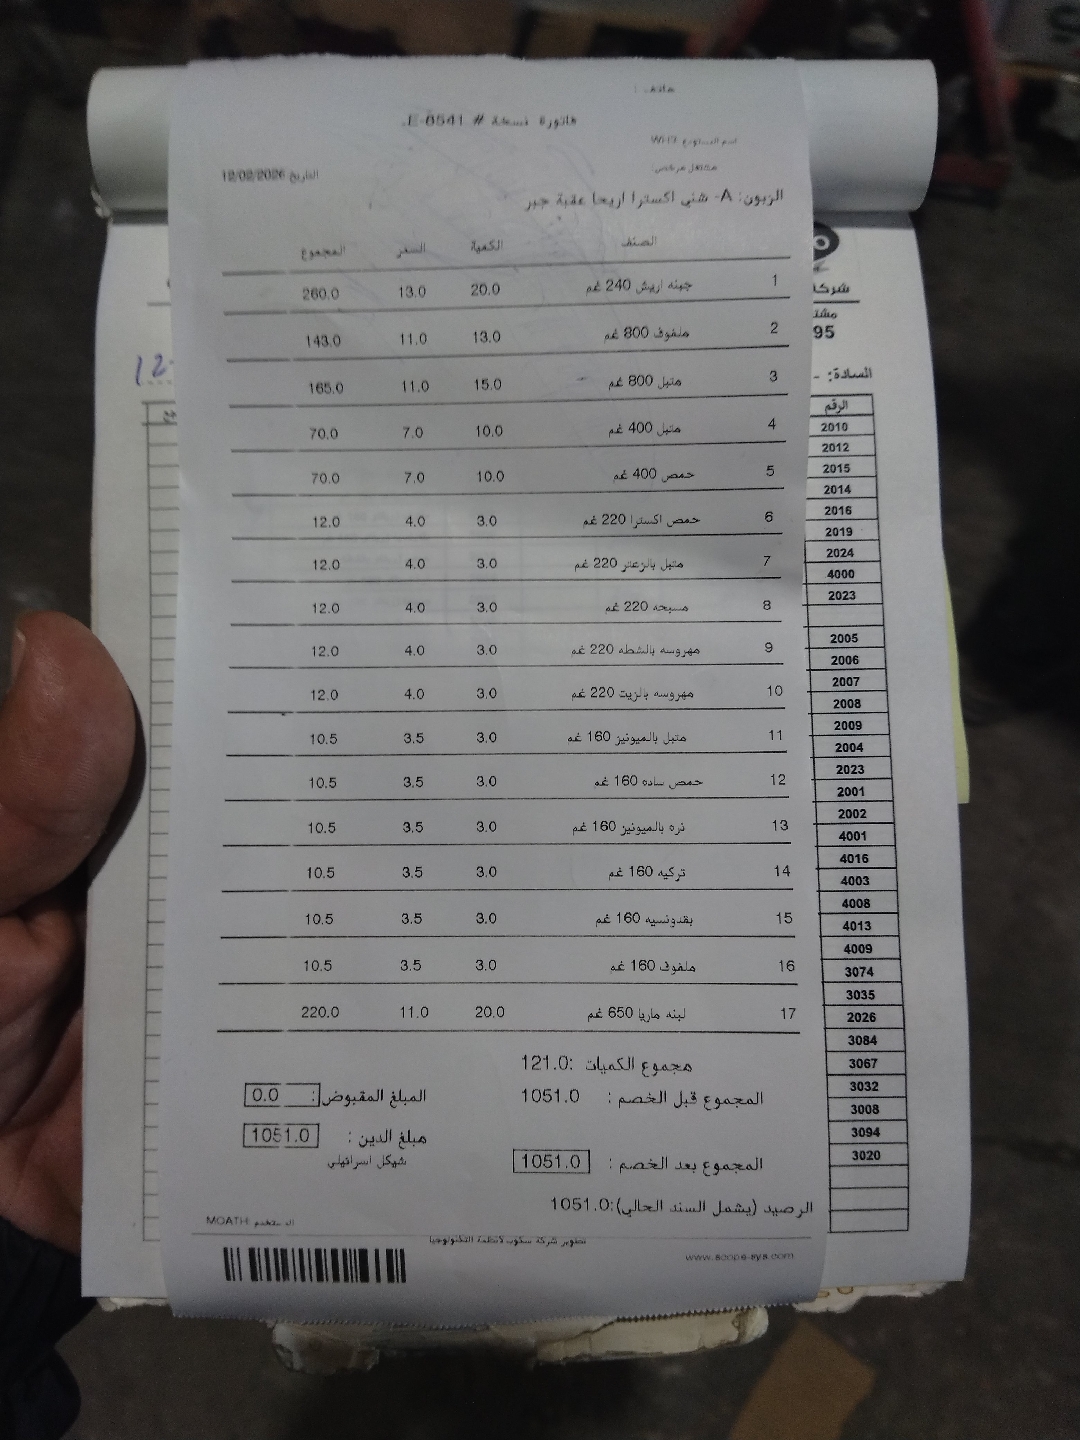 هاتف :
فاتورة نسخة # E-6541
اسم المستودع WH3
مشتغل مرخص:
التاريخ 12/02/2026
الزبون: A- شني اكسترا اريحا عقبة جبر
الصنف الكمية السعر المجموع
1 جبنه اريش 240 غم 20.0 13.0 260.0
2 ملفوف 800 غم 13.0 11.0 143.0
3 متبل 800 غم 15.0 11.0 165.0
4 متبل 400 غم 10.0 7.0 70.0
5 حمص 400 غم 10.0 7.0 70.0
6 حمص اكسترا 220 غم 3.0 4.0 12.0
7 متبل بالزعتر 220 غم 3.0 4.0 12.0
8 مسبحه 220 غم 3.0 4.0 12.0
9 مهروسه بالشطه 220 غم 3.0 4.0 12.0
10 مهروسه بالزيت 220 غم 3.0 4.0 12.0
11 متبل بالميونيز 160 غم 3.0 3.5 10.5
12 حمص ساده 160 غم 3.0 3.5 10.5
13 ذره بالميونيز 160 غم 3.0 3.5 10.5
14 تركيه 160 غم 3.0 3.5 10.5
15 بقدونسيه 160 غم 3.0 3.5 10.5
16 ملفوف 160 غم 3.0 3.5 10.5
17 لبنه ماريا 650 غم 20.0 11.0 220.0
مجموع الكميات :121.0
المجموع قبل الخصم : 1051.0 المبلغ المقبوض: 0.0
مبلغ الدين : 1051.0
المجموع بعد الخصم : 1051.0 شيكل اسرائيلي
الرصيد (يشمل السند الحالي):1051.0
المستخدم MOATH
تطوير شركة سكوب لانظمة التكنولوجيا
www.scope-sys.com
شركة
مشت
95
السادة: -
12
الرقم
2010
2012
2015
2014
2016
2019
2024
4000
2023
2005
2006
2007
2008
2009
2004
2023
2001
2002
4001
4016
4003
4008
4013
4009
3074
3035
2026
3084
3067
3032
3008
3094
3020